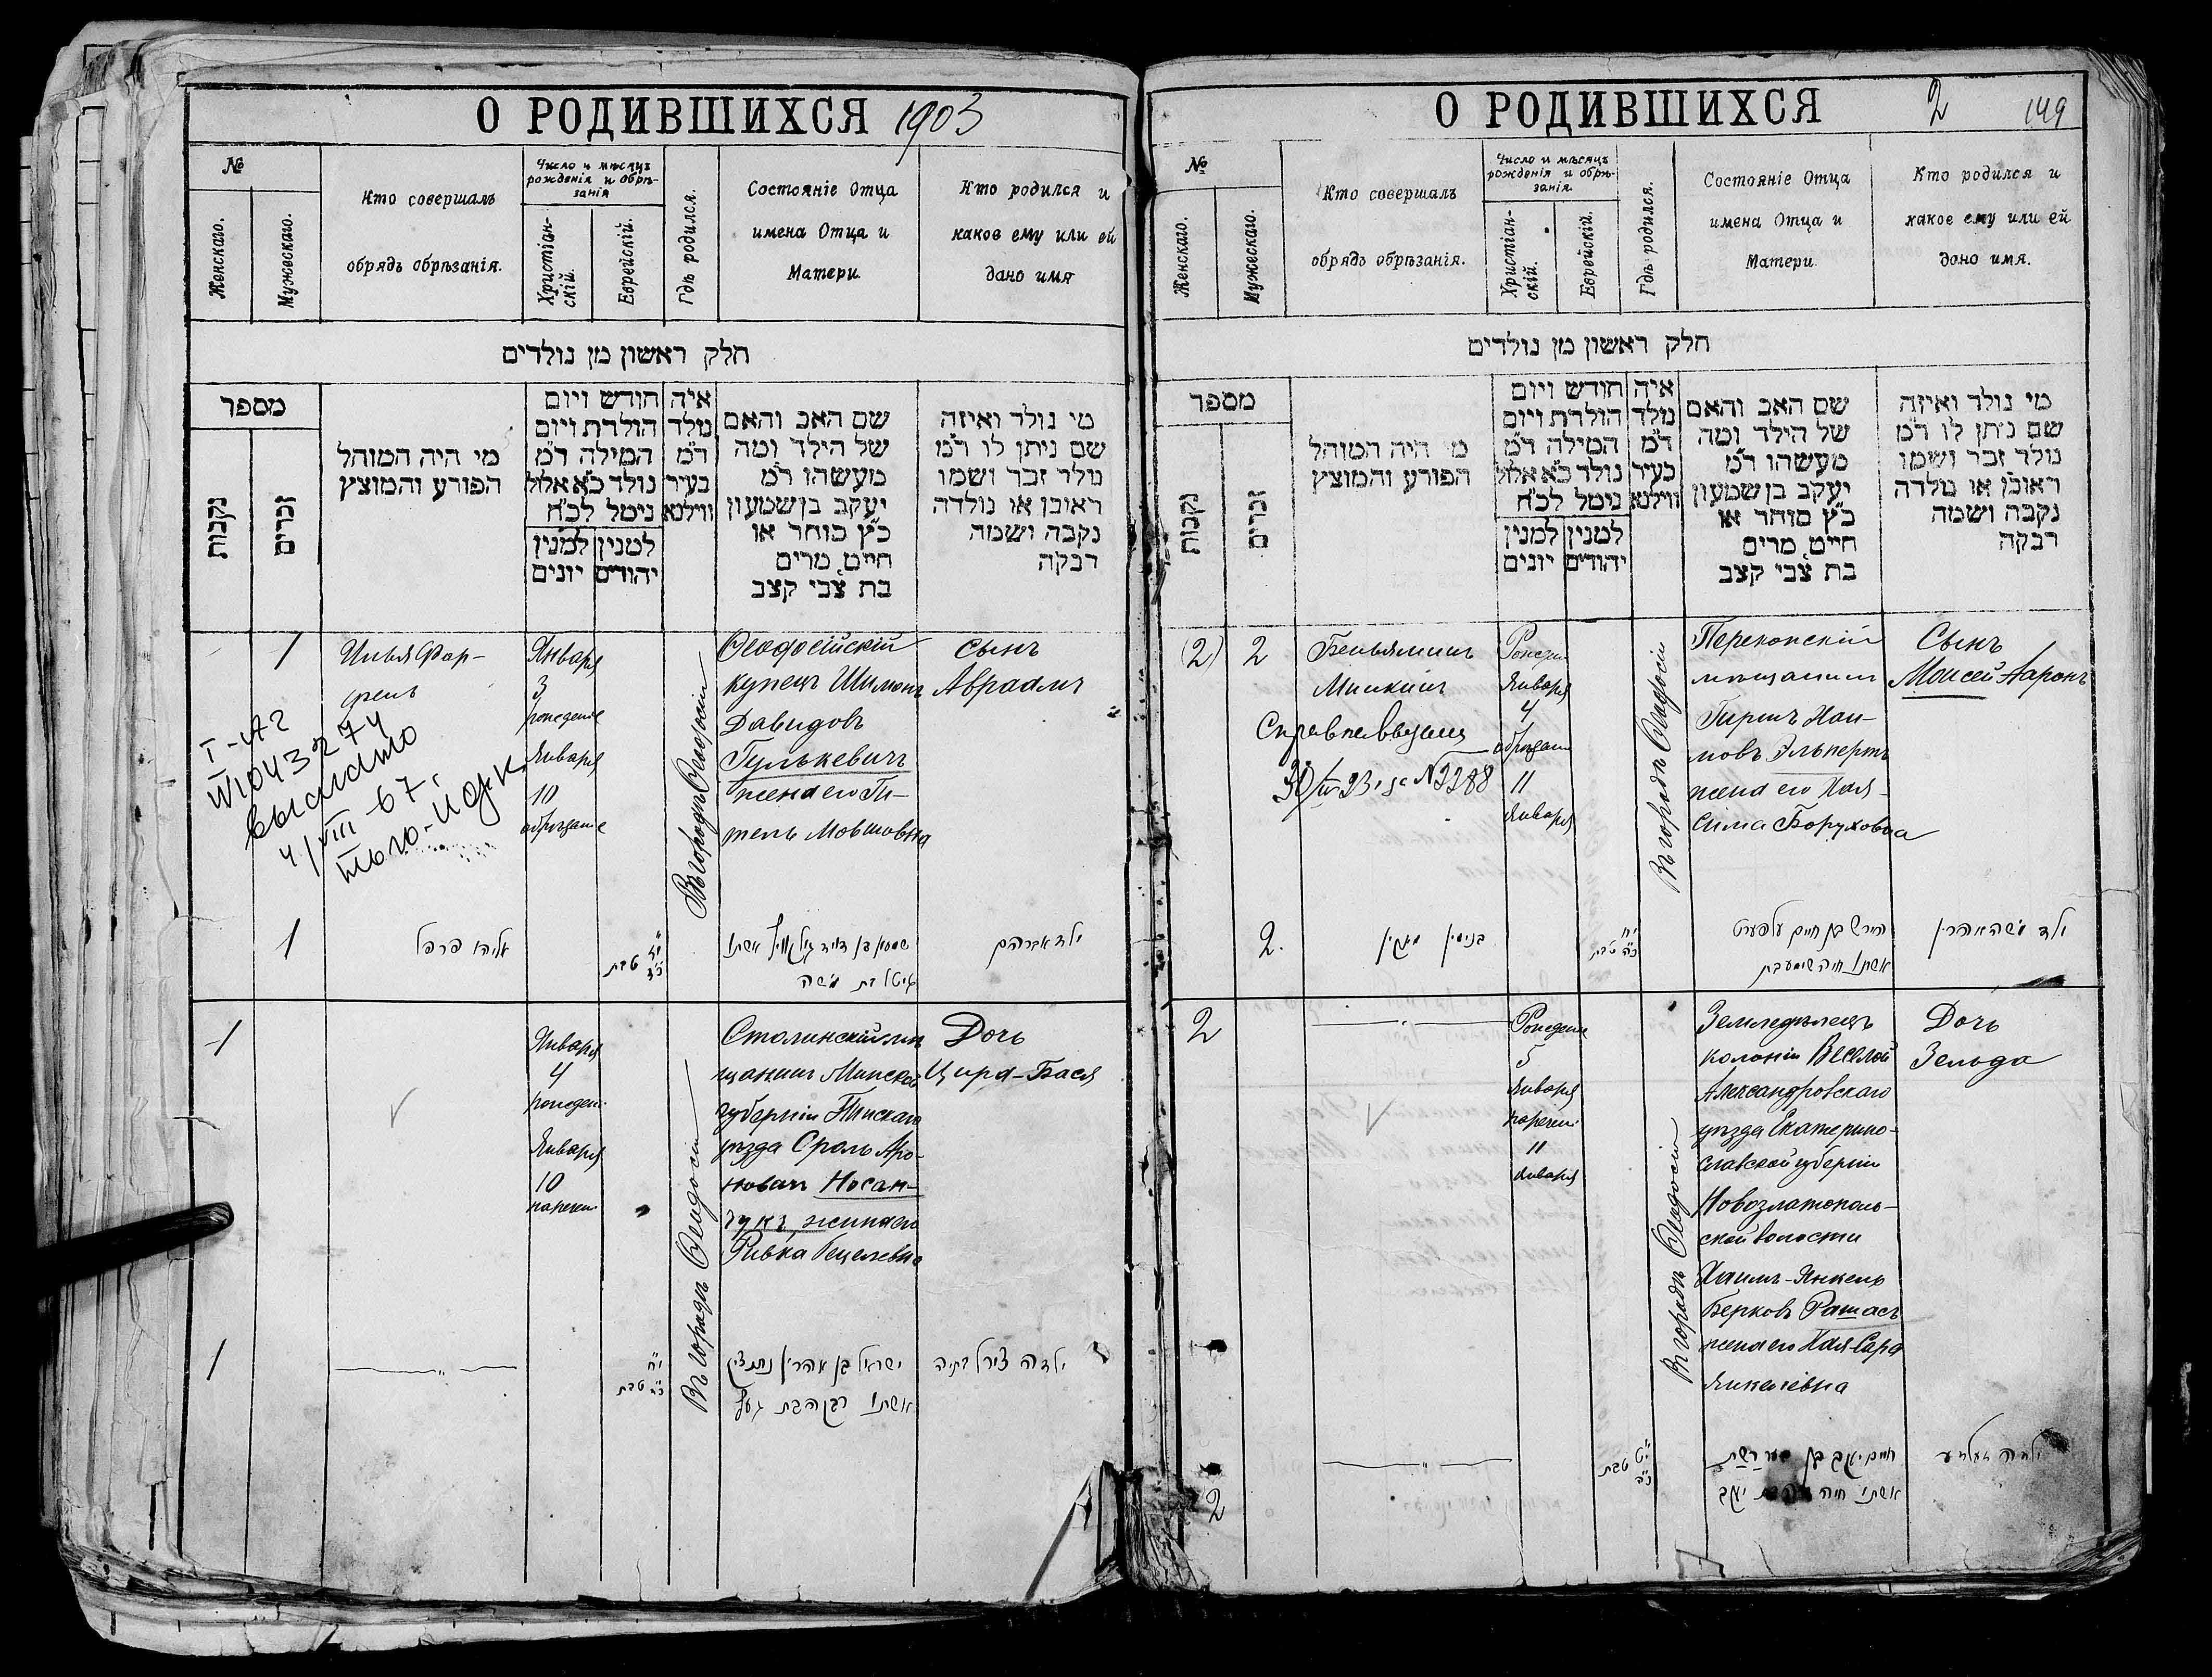 О РОДИВШИХСЯ 1903
№
Женскаго.
Мужескаго.
Кто совершалъ
обрядъ обрѣзанія.
Число и мѣсяцъ
рожденія и обрѣ-
занія
Христіан-
скій.
Еврейскій.
Гдѣ родился.
Состояніе Отца
имена Отца и
Матери.
Кто родился и
какое ему или ей
дано имя
חלק ראשון מן נולדים
מספר
נקבות
זכרים
מי היה המוהל
הפורע והמוצץ
חודש ויום
הולדת ויום
המילה ד״מ
נולד כ״א אלול
נימל לכ״ח
למנין למנין
יהודים יונים
איה
נולד
ד״מ
בעיר
ווילנא
שם האב והאם
של הילד ומה
מעשהו ד״מ
יעקב בן שמעון
כ״ץ סוחר או
חייט, מרים
בת צבי קצב
מי נולד ואיזה
שם ניתן לו ד״מ
נולד זכר ושמו
ראובן או נולדה
נקבה ושמה
רבקה
1
Илья Фор-
Января
3
рожденіе
Января
10
обрѣзаніе
Въ городѣ Ѳеодосіи
Ѳеодосійскій
купецъ Шимонъ
Давидовъ
Гулькевичъ
жена его Ги-
тель Мовшовна
Сынъ
Авраамъ
выслано
4/VIII-67г.
1
טבת
אשתו
בת משה
ילד אברהם
1
Января
4
рожден.
Января
10
наречен.
Въ городѣ Ѳеодосіи
Столинскій мѣ-
щанинъ Минской
губерніи Пинскаго
уѣзда Сроль Аро-
новъ Носан-
чукъ жена его
Ривка Гецелевна
Дочь
Цира-Бася
1
טבת
ישראל בן אהרון
אשתו רבקה בת
ילדה
О РОДИВШИХСЯ 2 149
№
Женскаго.
Мужескаго.
Кто совершалъ
обрядъ обрѣзанія.
Число и мѣсяцъ
рожденія и обрѣ-
занія.
Христіан-
скій.
Еврейскій.
Гдѣ родился.
Состояніе Отца
имена Отца и
Матери
Кто родился и
какое ему или ей
дано имя.
חלק ראשון מן נולדים
מספר
נקבות
זכרים
מי היה המוהל
הפורע והמוצץ
חודש ויום
הולדת ויום
המילה ד״מ
נולד כ״א אלול
נימל לכ״ח
למנין למנין
יהודים יונים
איה
נולד
ד״מ
בעיר
ווילנא
שם האב והאם
של הילד ומה
מעשהו ד״מ
יעקב בן שמעון
כ״ץ סוחר או
חייט, מרים
בת צבי קצב
מי נולד ואיזה
שם ניתן לו ד״מ
נולד זכר ושמו
ראובן או נולדה
נקבה ושמה
רבקה
(2) 2
Беньяминъ
Минкинъ
Справка выдана
№ 2288
Рожден.
Января
4
обрѣзан.
11
Января
Въ городѣ Ѳеодосіи
Перекопскій
мѣщанинъ
Гиршъ Хаи-
мовъ Эльпертъ
жена его Хая-
Сима Боруховна
Сынъ
Моисей-Аронъ
2.
בנימין מינקין
טבת
הירש בן חיים
אשתו חיה
ילד משה אהרון
2
Рожден.
5
Января
наречен.
11
Января
Въ городѣ Ѳеодосіи
Земледѣлецъ
колоніи Веселой
Александровскаго
уѣзда Екатерино-
славской губерніи
Новозлатополь-
ской волости
Хаимъ-Янкель
Берковъ Рашасъ
жена его Хая-Сара
Янкелевна
Дочь
Зельда
2
טבת
חיים יעקב בן
אשתו חיה בת יעקב
ילדה